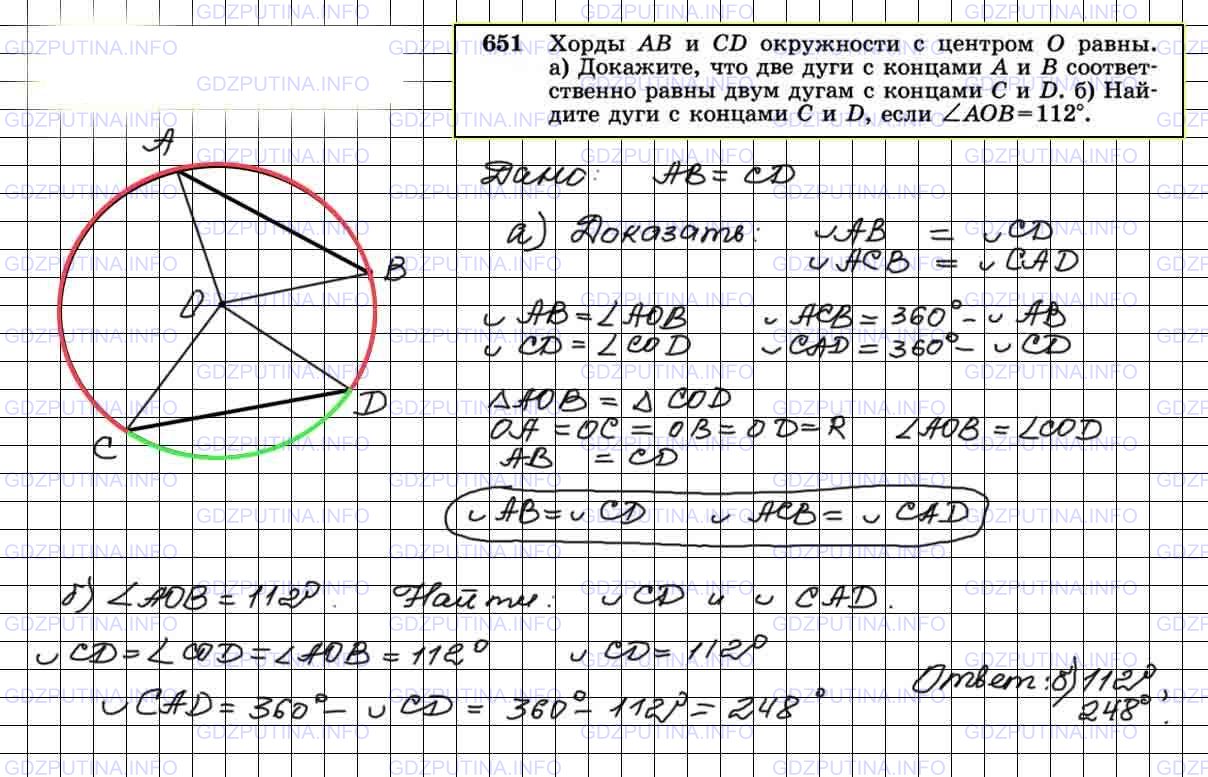 651 Хорды AB и CD окружности с центром O равны.
а) Докажите, что две дуги с концами A и B соответ-
ственно равны двум дугам с концами C и D. б) Най-
дите дуги с концами C и D, если ∠AOB=112°.
A
B
O
D
C
Дано: AB = CD
а) Доказать: ◡AB = ◡CD
◡ACB = ◡CAD
◡AB = ∠AOB ◡ACB = 360° - ◡AB
◡CD = ∠COD ◡CAD = 360° - ◡CD
△AOB = △COD
OA = OC = OB = OD = R ∠AOB = ∠COD
AB = CD
◡AB = ◡CD ◡ACB = ◡CAD
б) ∠AOB = 112°. Найти: ◡CD и ◡CAD.
◡CD = ∠COD = ∠AOB = 112° ◡CD = 112°
◡CAD = 360° - ◡CD = 360° - 112° = 248°
Ответ: б) 112°;
248°.
GDZPUTINA.INFO